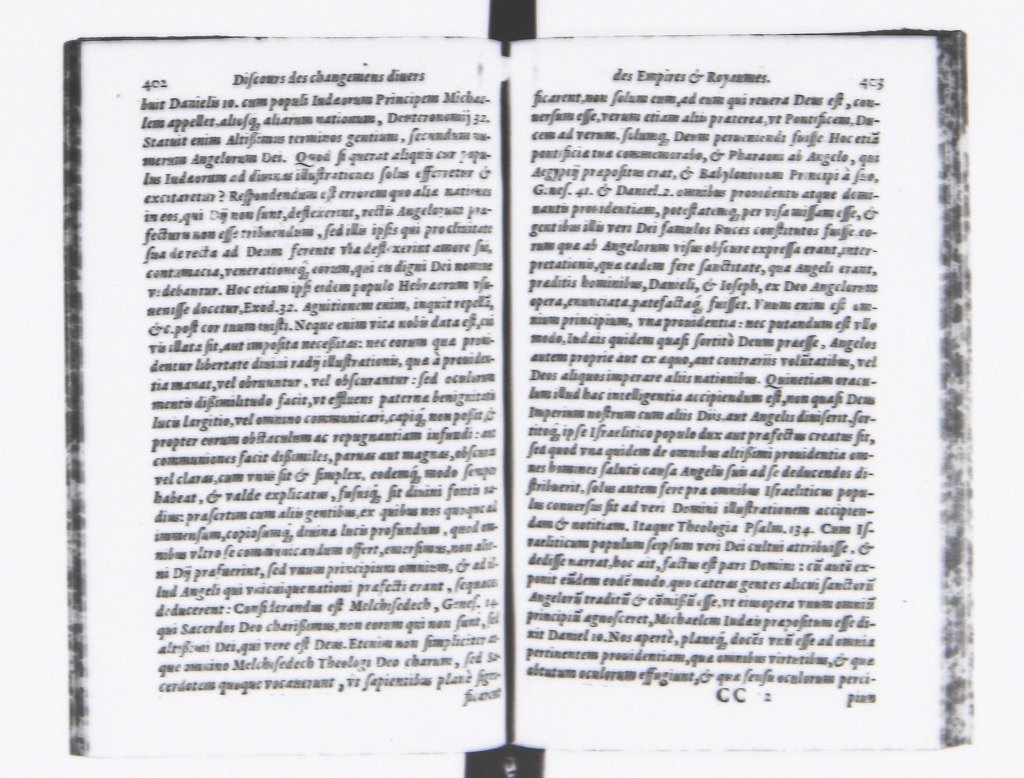 402 Discours des changemens divers
buit Danielis 10. cum populi Iudaorum Principem Michae-
lem appellet, aliosq, aliarum nationum, Deuteronomij 32.
Statuit enim Altißimus terminos gentium, secundum nu-
merum Angelorum Dei. Quod si querat aliquis cur popu-
lus Iudaorum ad diuinas illustrationes solus efferretur &
excitaretur? Respondendum est errorem quo alia nationes
in eos, qui Dij non sunt, deflexerint, rectis Angelorum pra-
fecturis non esse tribuendum, sed illis ipsis qui procliuitate
sua de recta ad Deum ferente via deflexerint amore sui,
contumacia, venerationeq, eorum, qui eis digni Dei nomine
videbantur. Hoc etiam ipsi eidem populo Hebraorum vsu-
uenisse docetur, Exod. 32. Agnitionem enim, inquit repelli,
&c. post cor tuum iuisti. Neque enim vita nobis data est, cui
vis illata sit, aut imposita neceßitas: nec eorum qua proui-
dentur libertate diuini radij illustrationis, qua à prouiden-
tia manat, vel obruuntur, vel obscurantur: sed oculorum
mentis dißimilitudo facit, vt effluens paterna benignitatis
lucis largitio, vel omnino communicari, capiq, non poßit, &
propter eorum obstaculum ac repugnantiam infundi: aut
communiones facit dißimiles, paruas aut magnas, obscuras
vel claras, cum vnus sit & simplex, eodemq, modo semper
habeat, & valde explicatus, fususq, sit diuini fontis ra-
dius: prasertim cum aliis gentibus, ex quibus nos quoque ad
immensum, copiosumq, diuina lucis profundum, quod om-
nibus vltro se communicandum offert, emersimus, non alie-
ni Dij prafuerint, sed vnum principium omnium, & ad il-
lud Angeli qui vnicuique nationi prafecti erant, sequaces
deducerent: Considerandus est Melchisedech, Genes. 14
qui Sacerdos Deo charißimus, non eorum qui non sunt, sed
altißimi Dei, qui vere est Deus. Etenim non simpliciter at-
que omnino Melchisedech Theologi Deo charum, sed Sa-
cerdotem quoque vocauerunt, vt sapientibus planè signi-
ficarent
des Empires & Royaumes. 403
ficarent, non solum eum, ad eum qui reuera Deus est, con-
uersum esse, verum etiam aliis praterea, vt Pontificem, Du-
cem ad verum, solumq, Deum perueniendi fuisse Hoc etiã
pontificia tua commemorabo, & Pharaoni ab Angelo, qui
Aegyptijs prapositus erat, & Babyloniorum Principi à suo,
Genes. 41. & Daniel. 2. omnibus prouidentis atque domi-
nantis prouidentiam, potestatemq, per visa missam esse, &
gentibus illis veri Dei famulos Duces constitutos fuisse. eo-
rum qua ab Angelorum visis obscure expressa erant, inter-
pretationis, qua eadem fere sanctitate, qua Angeli erant,
praditis hominibus, Danieli, & Ioseph, ex Deo Angelorum
opera, enunciata, patefactaq, fuisset. Vnum enim est om-
nium principium, vna prouidentia: nec putandum est vllo
modo, Iudais quidem quasi sortitò Deum praesse, Angelos
autem proprie aut ex aquo, aut contrariis volũtatibus, vel
Deos aliquos imperare aliis nationibus. Quinetiam oracu-
lum illud hac intelligentia accipiendum est, non quasi Deus
Imperium nostrum cum aliis Diis. aut Angelis diuiserit, sor-
titoq, ipse Israelitico populo dux aut prafectus creatus sit,
sed quod vna quidem de omnibus altißimi prouidentia om-
nes homines salutis causa Angelis suis ad se deducendos di-
stribuerit, solus autem fere pra omnibus Israeliticus popu-
lus conuersus sit ad veri Domini illustrationem accipien-
dam & notitiam. Itaque Theologia Psalm. 134. Cum Is-
raeliticum populum seipsum veri Dei cultui attribuisse, &
dedisse narrat, hoc ait, factus est pars Domini: cũ autẽ ex-
ponit eũdem eodẽ modo, quo cateras gentes alicui sanctorũ
Angelorũ traditũ & cõmißũ esse, vt eius opera vnum omniũ
principiũ agnosceret, Michaelem Iudais prapositum esse di-
xit Daniel 10. Nos apertè, planeq, docẽs vnũ esse ad omnia
pertinentem prouidentiam, qua omnibus virtutibus, & qua
obtutum oculorum effugiunt, & qua sensu oculorum perci-
CC 2 pium